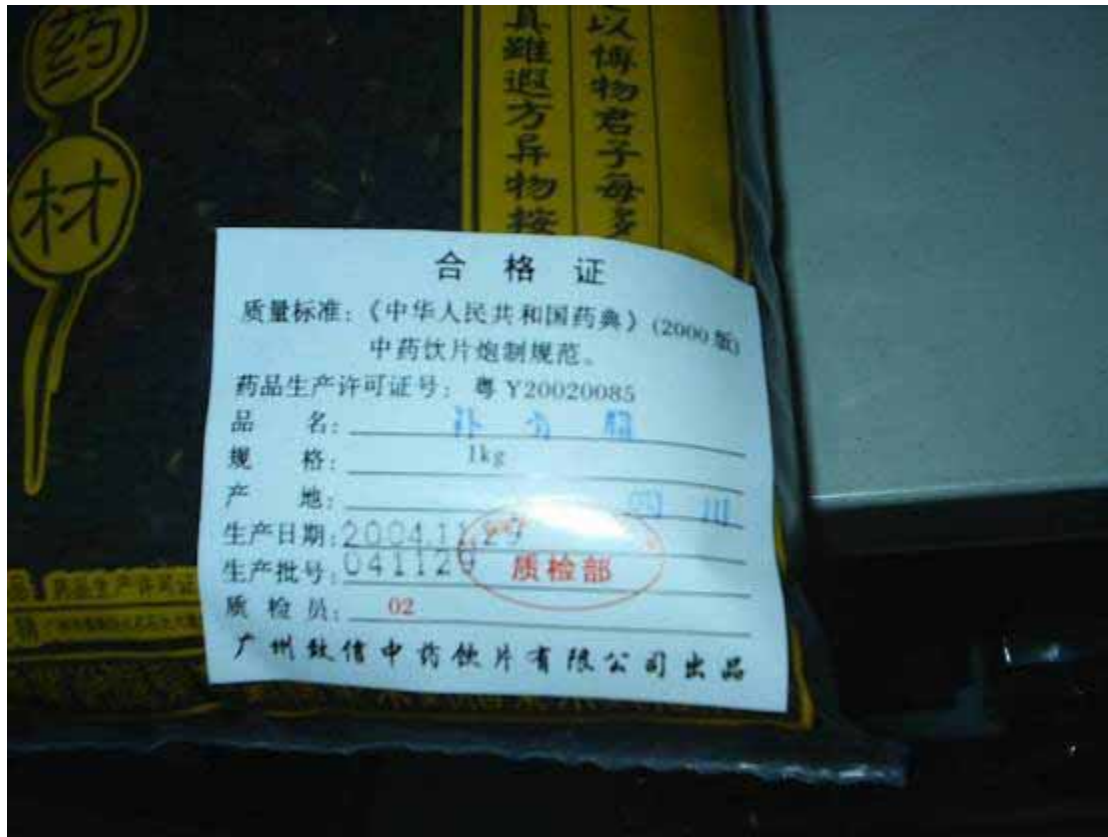 药材
以博物君子每多
真虽遐方异物按
合格证
质量标准:《中华人民共和国药典》(2000版)
中药饮片炮制规范。
药品生产许可证号: 粤Y20020085
品 名: 补骨脂
规 格: 1kg
产 地: 四川
生产日期: 2004.11.29
生产批号: 041129
质检部
质检员: 02
广州致信中药饮片有限公司出品
药品生产许可证